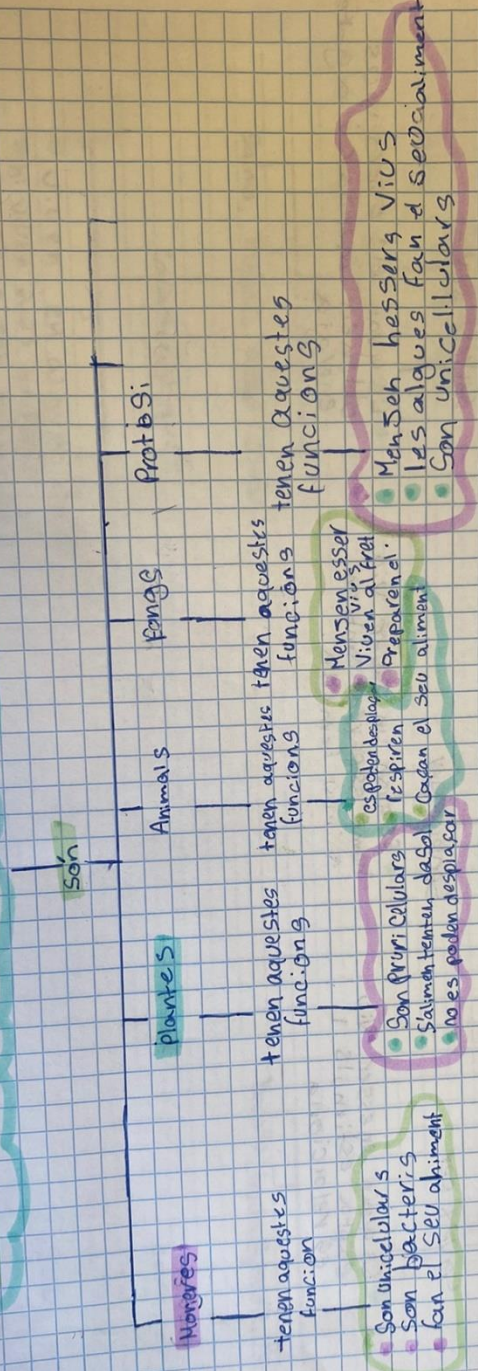 Són
Moneres
tenen aquestes
funcion
Son unicelulars
Son bacteris
fan el seu aliment
Plantes
tenen aquestes
funcions
Son pruricelulars
S'alimenten dasol
no es poden desplaçar
Animals
tenen aquestes
funcions
es poten desplaçar
respiren
Caçan el seu aliment
Fongs
tenen aquestes
funcions
Mensen esser
vius
Viuen al fret
Protosi
tenen aquestes
funcions
Mensen hessers vius
les algues fan el seu aliment
Son unicelilulars